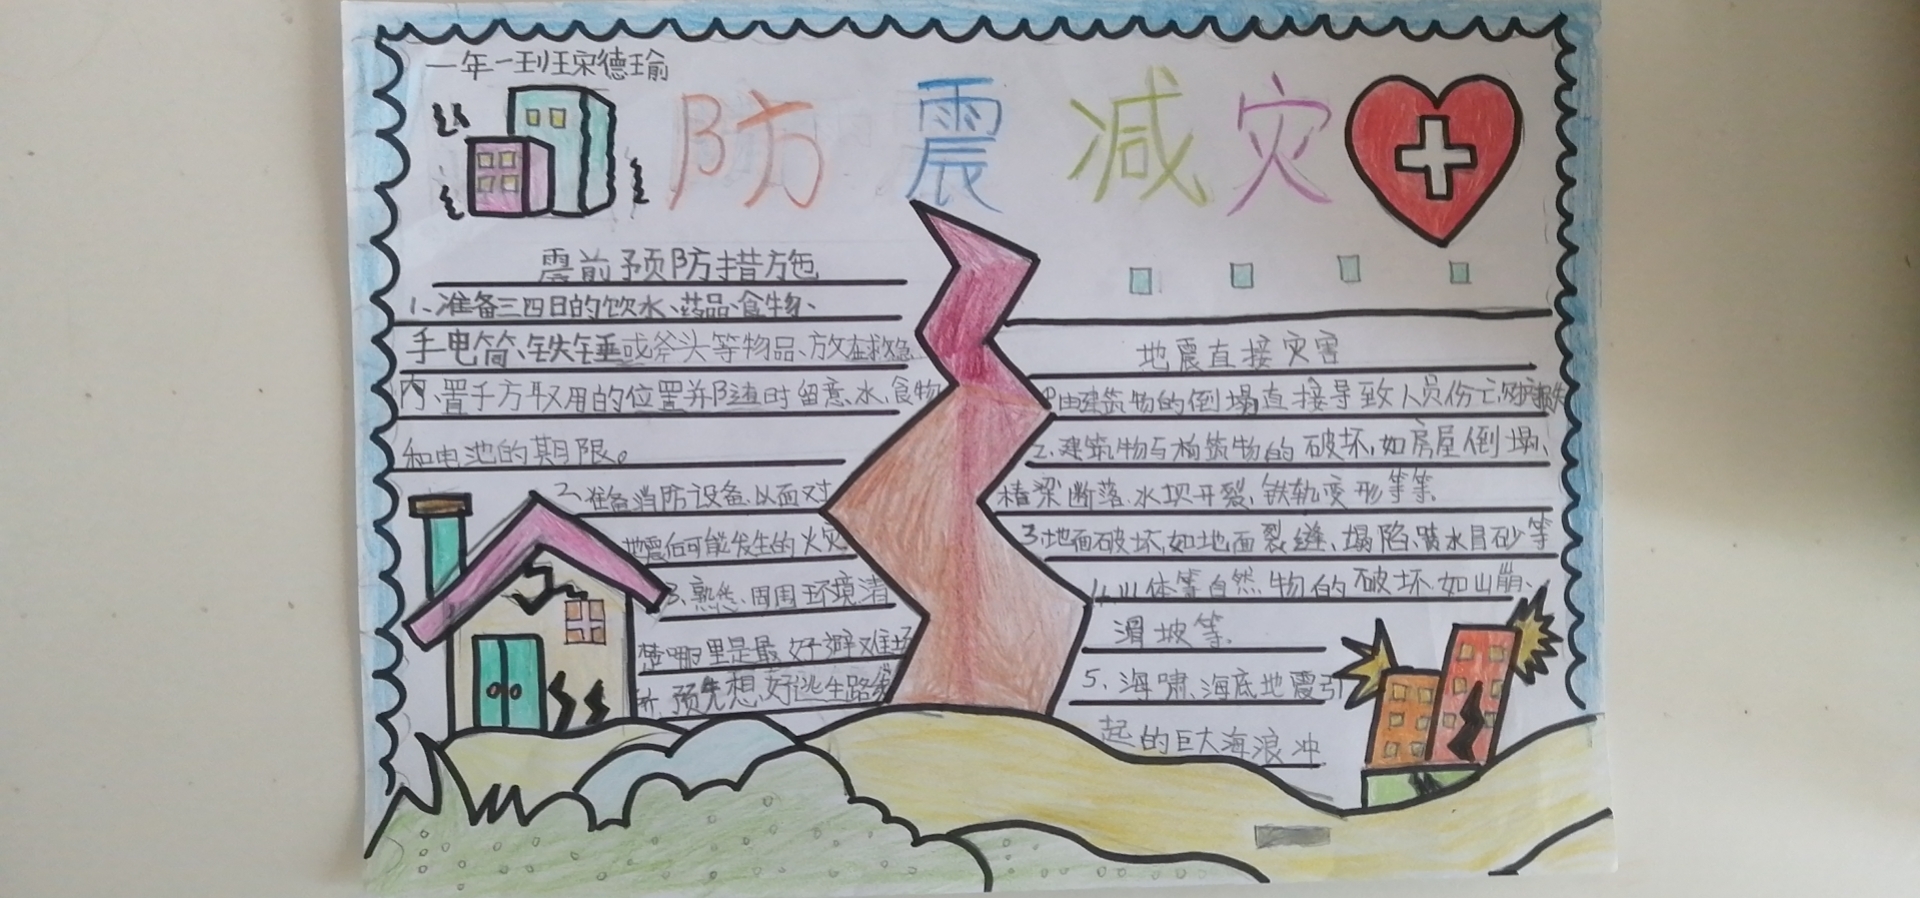 一年一班宋德瑜
防震减灾
震前预防措施
1、准备三四日的饮水、药品、食物、
手电筒、铁锤或斧头等物品、放在救急
内、置于方取用的位置并随时留意、水、食物
和电池的期限。
2、准备消防设备、以面对
地震后可能发生的火灾
3、熟悉、周围环境清
楚哪里是最好避难场
所、预先想好逃生路线
地震直接灾害
由建筑物的倒塌直接导致人员伤亡,财产损失
2、建筑物与构筑物的破坏,如房屋倒塌、
桥梁断落、水坝开裂、铁轨变形等等、
3、地面破坏,如地面裂缝、塌陷、喷水冒砂等
山体等自然物的破坏如山崩、
滑坡等、
5、海啸、海底地震引
起的巨大海浪冲